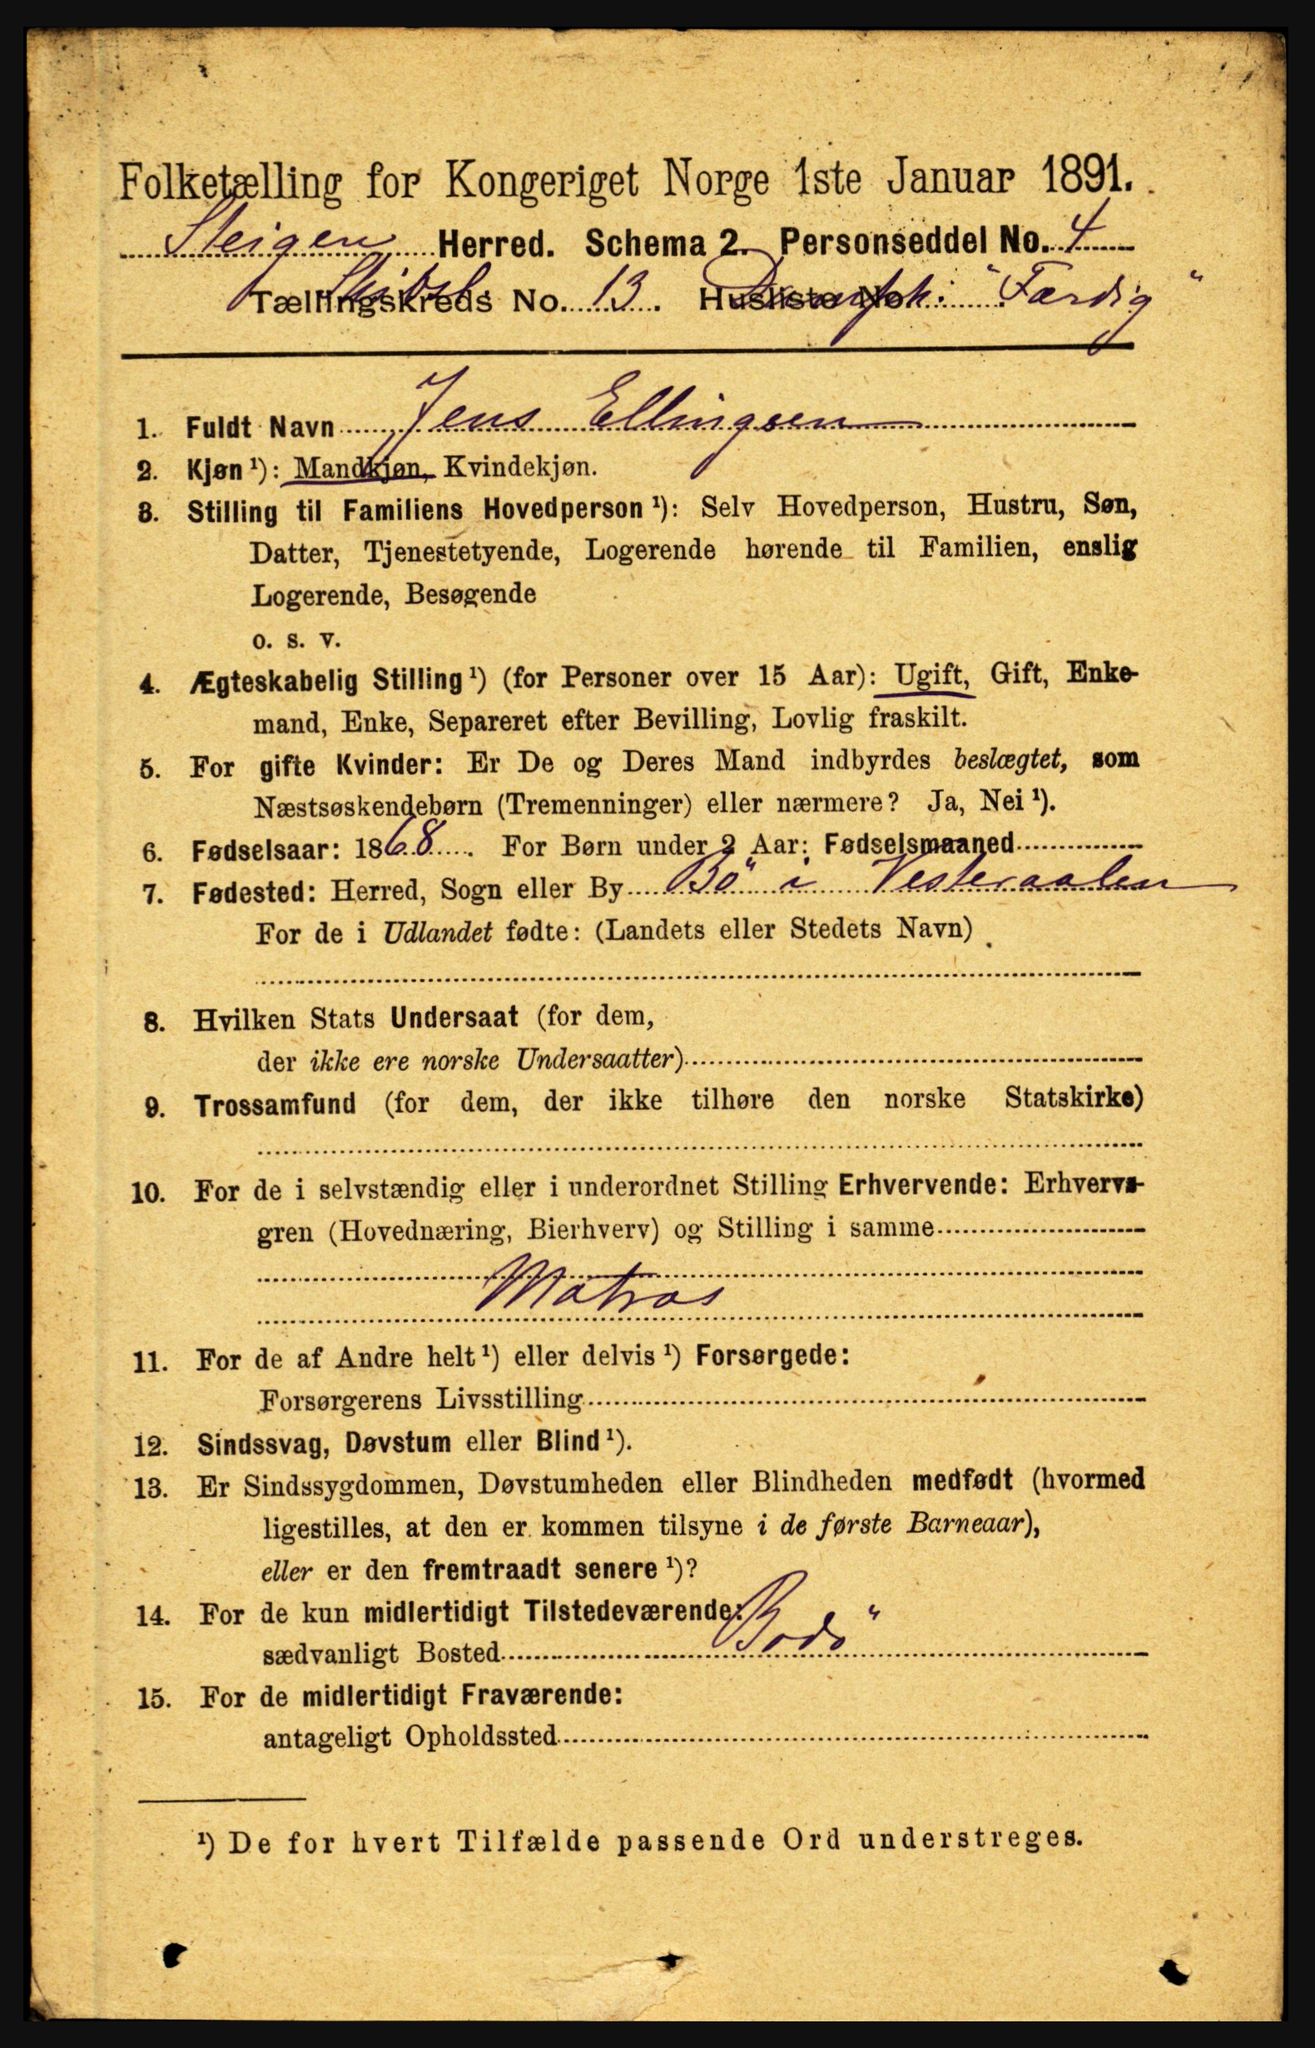 Folketælling for Kongeriget Norge 1ste Januar 1891.
Steigen Herred. Schema 2. Personseddel No. 4
Tællingskreds No. 13. Husliste No. "Færdig"
1. Fuldt Navn Jens Ellingsen
2. Kjøn ¹): Mandkjøn, Kvindekjøn.
3. Stilling til Familiens Hovedperson ¹): Selv Hovedperson, Hustru, Søn,
Datter, Tjenestetyende, Logerende hørende til Familien, enslig
Logerende, Besøgende
o. s. v.
4. Ægteskabelig Stilling ¹) (for Personer over 15 Aar): Ugift, Gift, Enke-
mand, Enke, Separeret efter Bevilling, Lovlig fraskilt.
5. For gifte Kvinder: Er De og Deres Mand indbyrdes beslægtet, som
Næstsøskendebørn (Tremenninger) eller nærmere? Ja, Nei ¹).
6. Fødselsaar: 1868. For Børn under 2 Aar: Fødselsmaaned
7. Fødested: Herred, Sogn eller By Bö i Vesteraalen
For de i Udlandet fødte: (Landets eller Stedets Navn)
8. Hvilken Stats Undersaat (for dem,
der ikke ere norske Undersaatter)
9. Trossamfund (for dem, der ikke tilhøre den norske Statskirke)
10. For de i selvstændig eller i underordnet Stilling Erhvervende: Erhvervs-
gren (Hovednæring, Bierhverv) og Stilling i samme
Matros
11. For de af Andre helt ¹) eller delvis ¹) Forsørgede:
Forsørgerens Livsstilling
12. Sindssvag, Døvstum eller Blind ¹).
13. Er Sindssygdommen, Døvstumheden eller Blindheden medfødt (hvormed
ligestilles, at den er kommen tilsyne i de første Barneaar),
eller er den fremtraadt senere ¹)?
14. For de kun midlertidigt Tilstedeværende:
sædvanligt Bosted Bodö
15. For de midlertidigt Fraværende:
antageligt Opholdssted
¹) De for hvert Tilfælde passende Ord understreges.